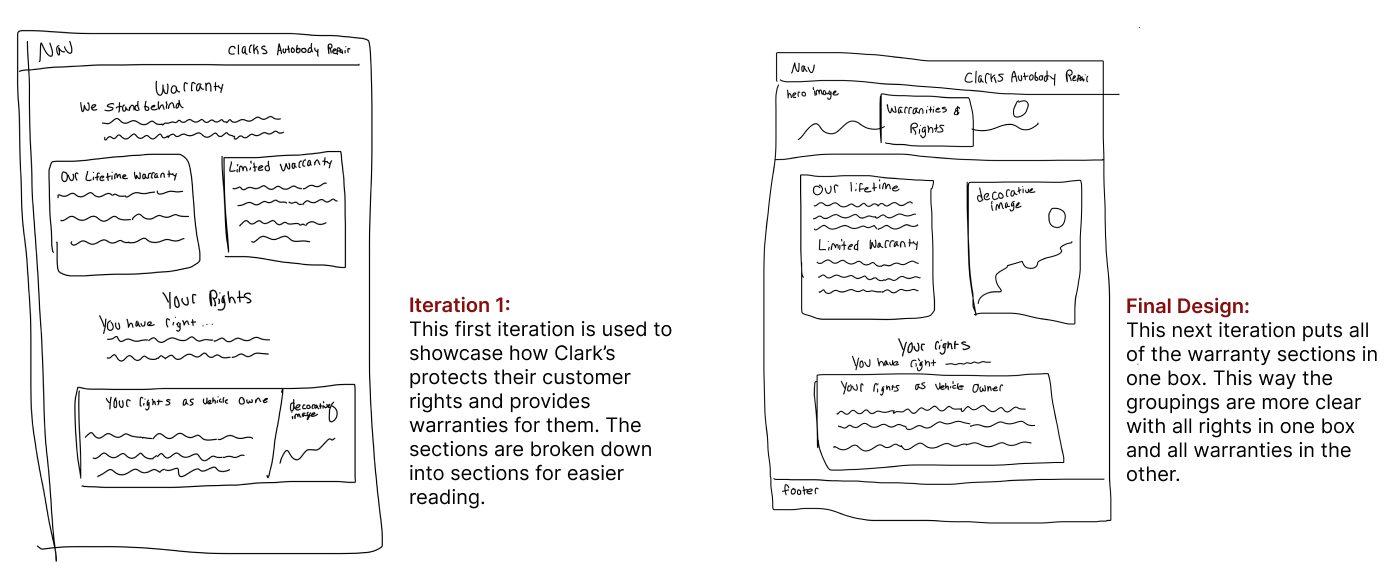 Nav
Clarks Autobody Repair
Warranty
We stand behind
Our Lifetime Warranty
Limited Warranty
Your Rights
You have right ...
Your rights as Vehicle Owne
decorative
image
Iteration 1:
This first iteration is used to
showcase how Clark’s
protects their customer
rights and provides
warranties for them. The
sections are broken down
into sections for easier
reading.
Nav
Clarks Autobody Repair
hero image
Warranities &
Rights
Our lifetime
Limited Warranty
decorative
image
Your rights
You have right
Your rights as Vehicle Owner
footer
Final Design:
This next iteration puts all
of the warranty sections in
one box. This way the
groupings are more clear
with all rights in one box
and all warranties in the
other.